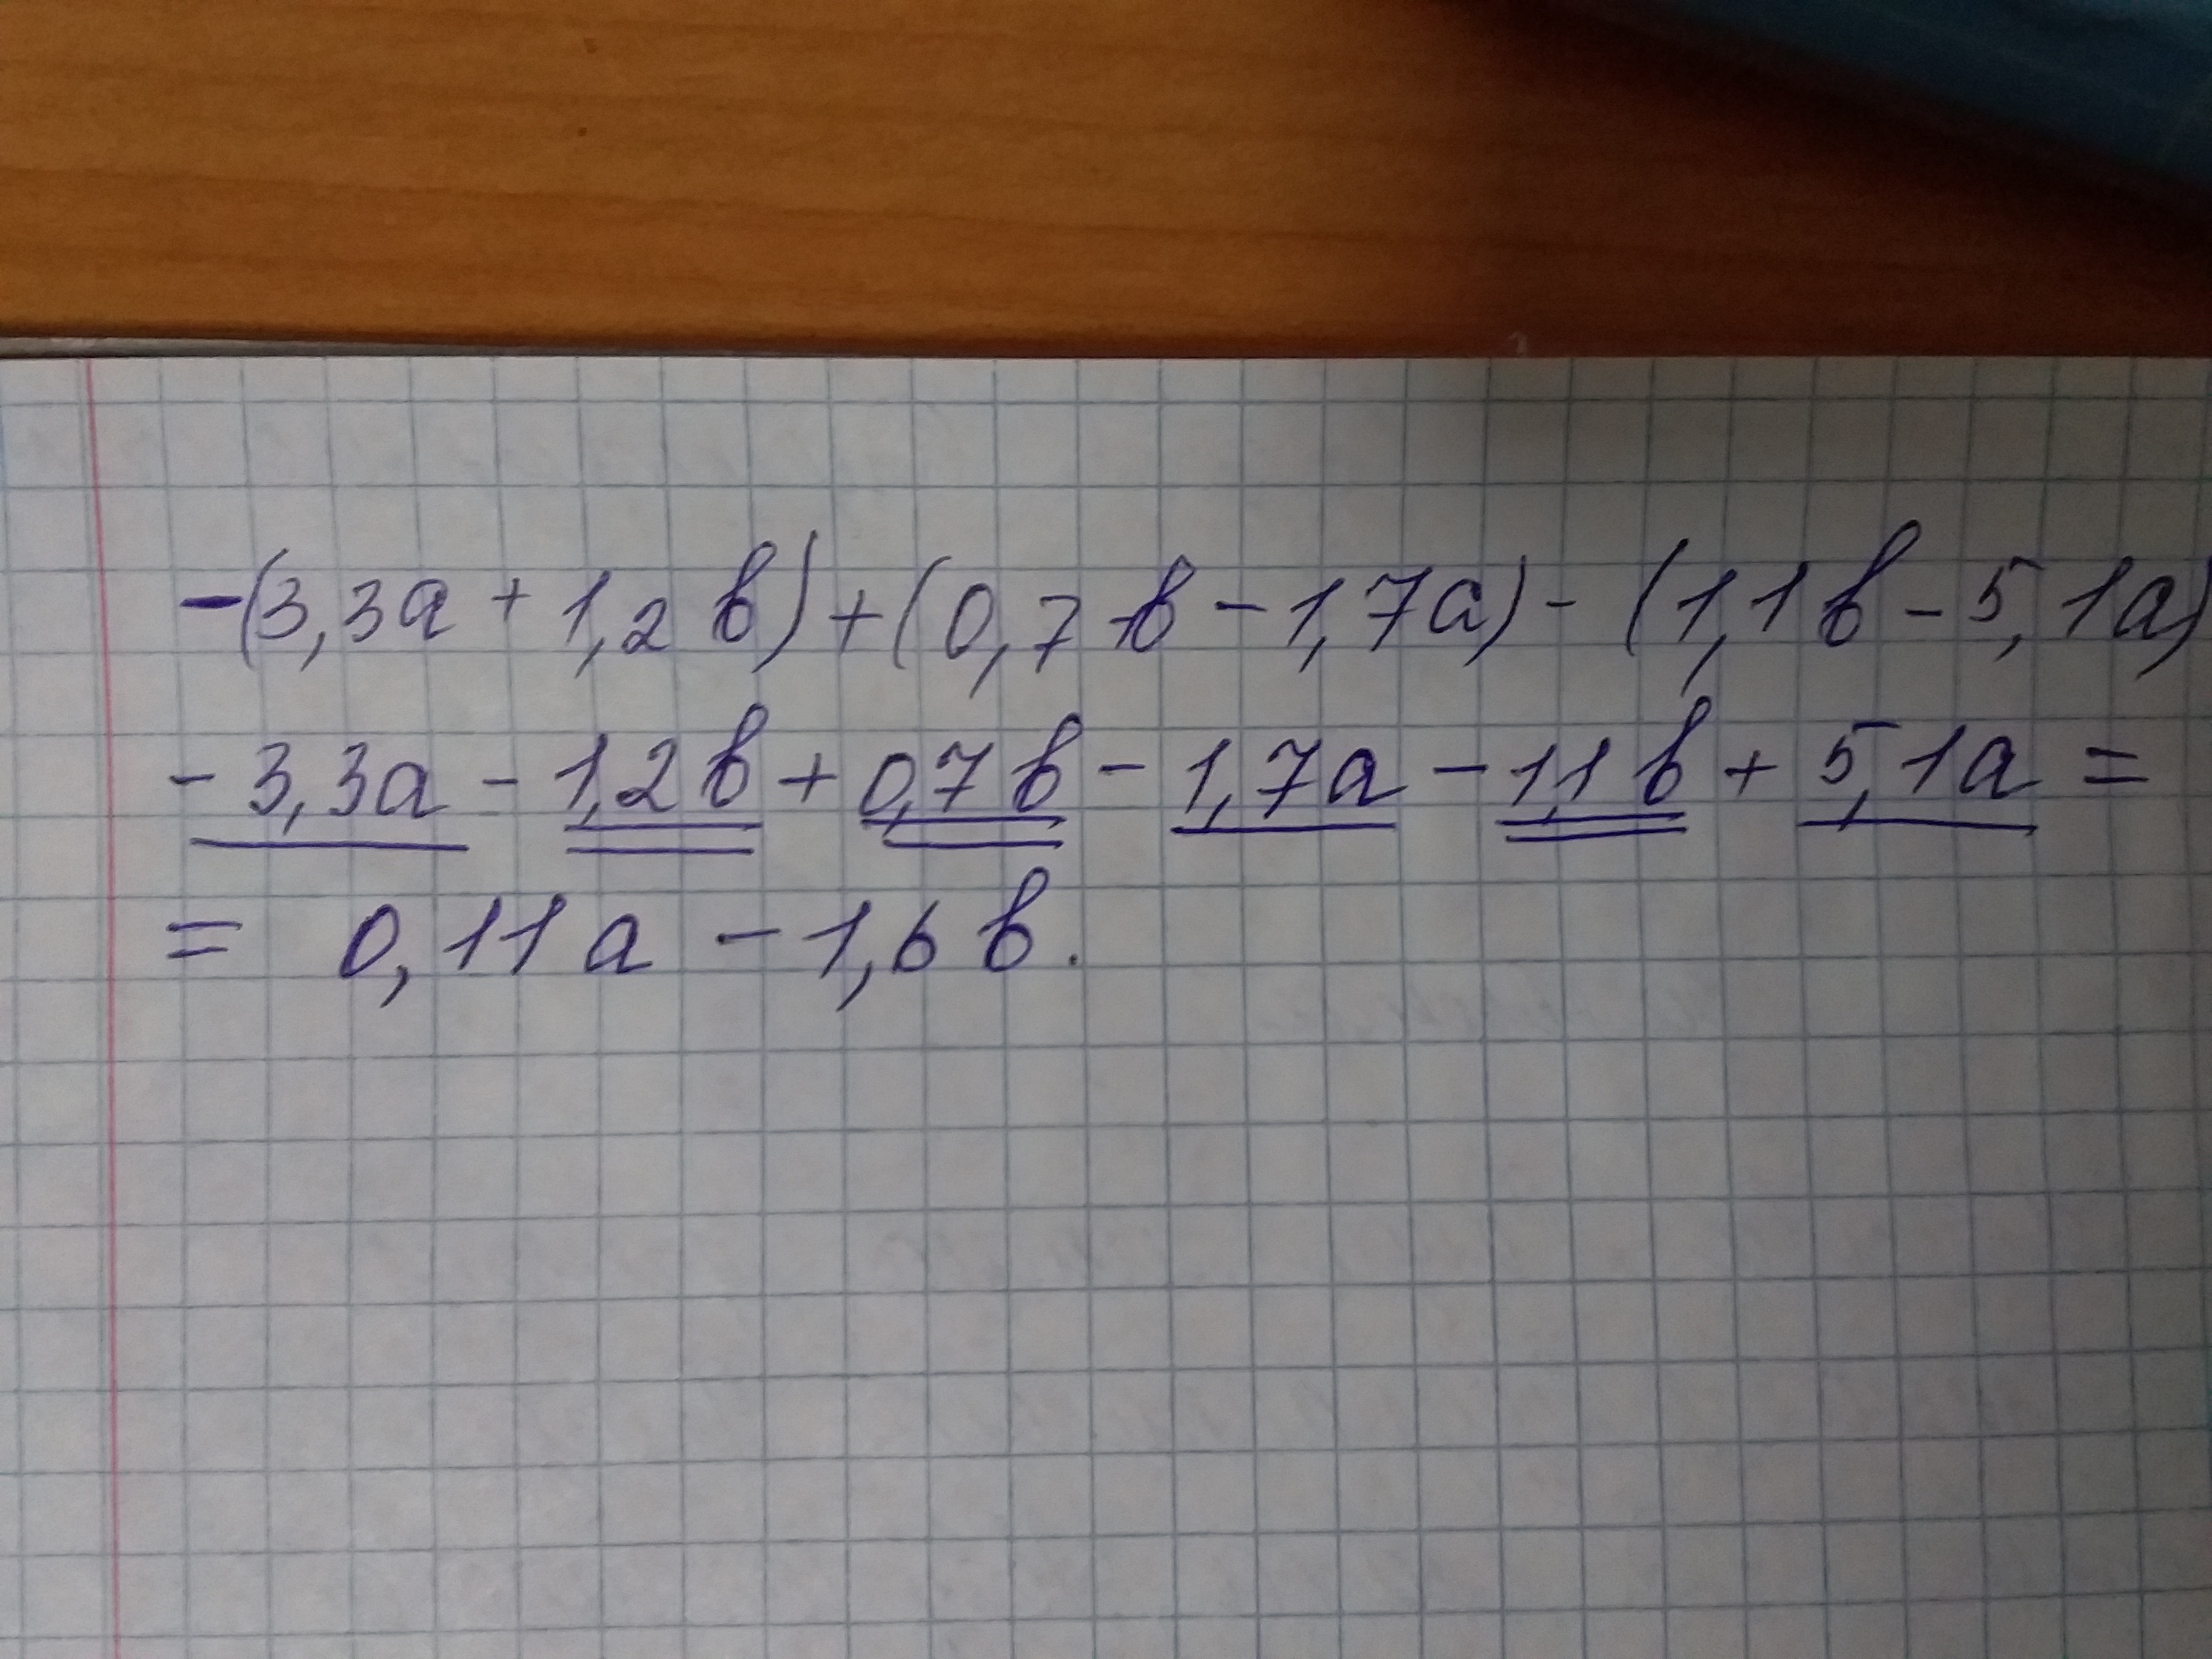 -(3,3a + 1,2 b) + (0,7 b - 1,7a) - (1,1 b - 5,1a)
- 3,3a - 1,2 b + 0,7 b - 1,7a - 1,1 b + 5,1a =
= 0,11 a - 1,6 b.